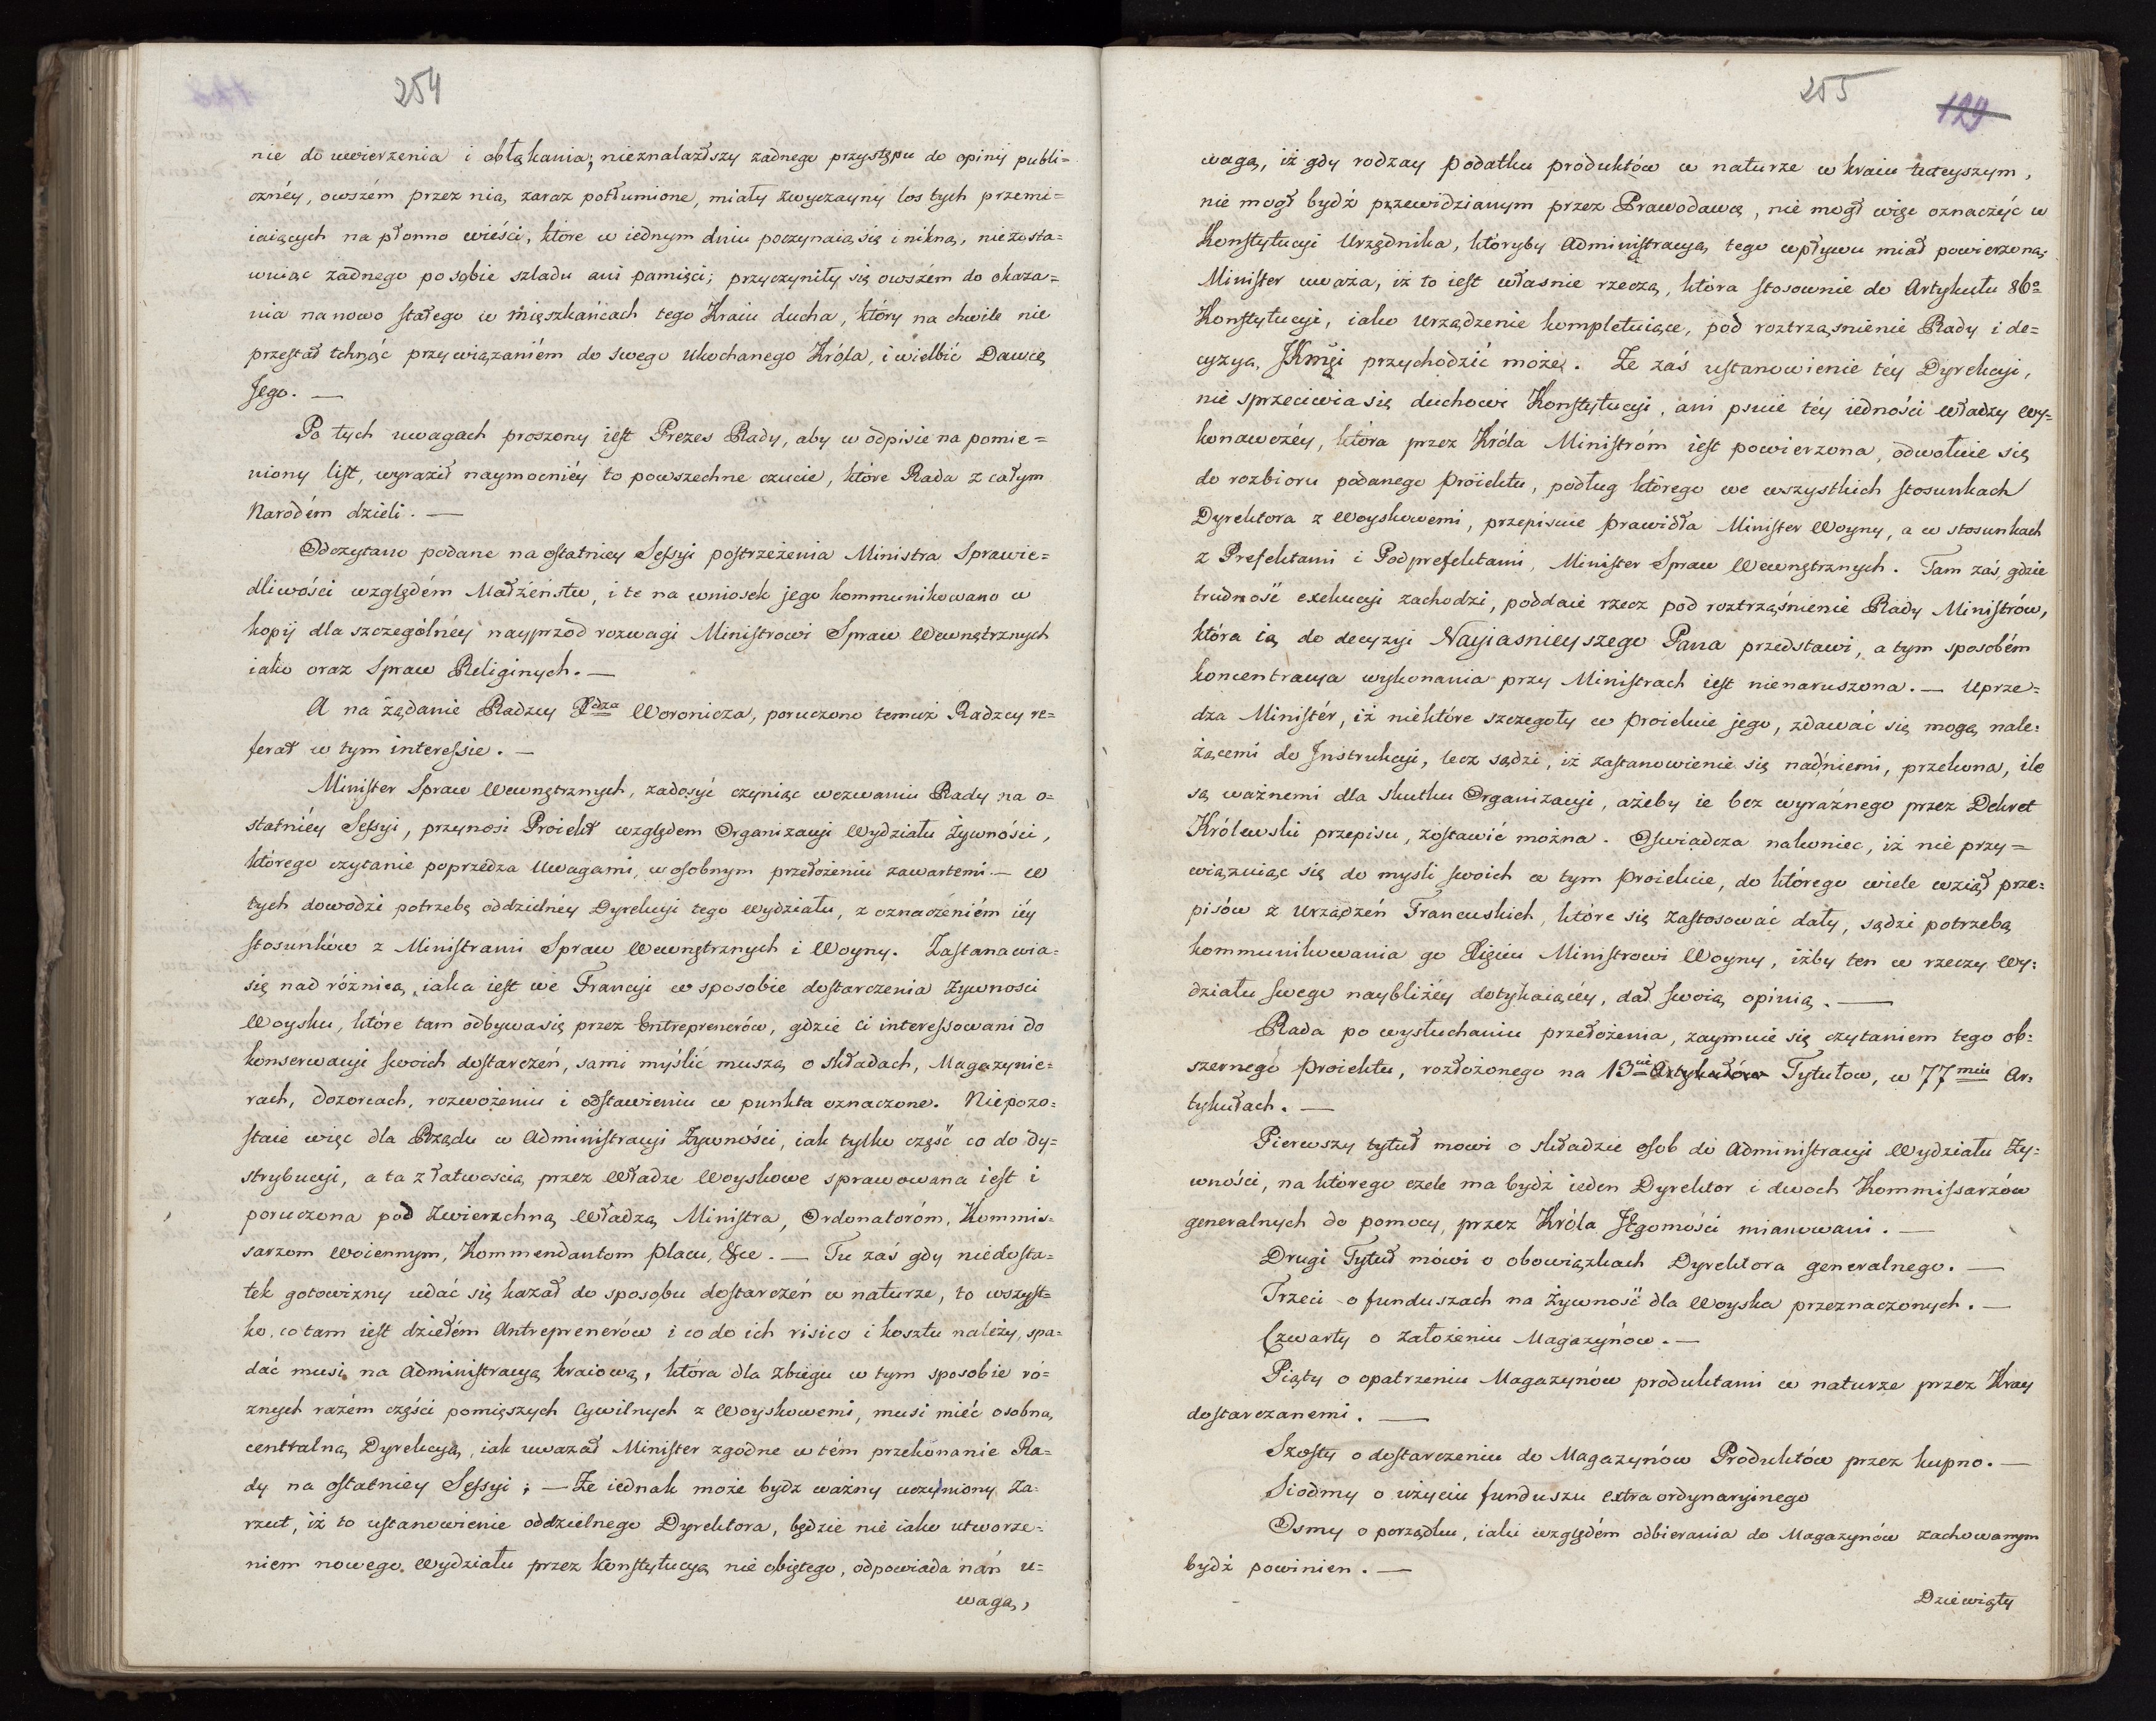 254
nie do uwierzenia i obłąkania; nieznalazłszy żadnego przystępu do opinij publi=
cznéy, owszém przez nią zaraz potłumione, miały zwyczayny los tych przemi=
iaiących na płonno wieści, które w iednym dniu poczynaią się i nikną, niezosta=
wuiąc żadnego po sobie szladu ani pamięci; przyczyniły się owszém do okaza=
nia na nowo stałego w mięszkańcach tego Kraiu ducha, który na chwile nie
przestał tchnąć przywiązaniém do swego Ukochanego Króla, i wielbić Dawcę
Jego. —
Po tych uwagach proszony iest Prezes Rady, aby w odpisie na pomie=
niony list, wyraził naymocniéy to powszechne czucie, które Rada z całym
Narodém dzieli. —
Odczytano podane na ostatniey Sessyi postrzeżenia Ministra Sprawie=
dliwości względém Małżeństw, i te na wniosek jego kommunikowano w
kopij dla szczególnéy nayprzód rozwagi Ministrowi Spraw Wewnętrznych
iako oraz Spraw Religinych. —
A na żądanie Radzcy Xdza Woronicza, poruczono temuż Radzcy re=
ferat w tym interessie. —
Minister Spraw Wewnętrznych, zadosyć czyniąc wezwaniu Rady na o=
statniéy Sessyi, przynosi Proiekt względem Organizacyi Wydziału Żywności,
którego czytanie poprzedza Uwagami, w osobnym przełożeniu zawartemi. — w
tych dowodzi potrzebę oddzielnéy Dyrekcyi tego wydziału, z oznaczeniém iéy
stosunków z Ministrami Spraw Wewnętrznych i Woyny. Zastanawia
się nad różnicą, iaka iest we Francyi w sposobie dostarczenia Żywności
Woysku, które tam odbywa się przez Entreprenerów, gdzie ci interessowani do
konserwacyi swoich dostarczeń, sami myślić muszą o składach, Magazynie=
rach, dozorcach, rozwożeniu i odstawieniu w punkta oznaczone. Niepozo=
staie więc dla Rządu w Administracyi Żywności, iak tylko część co do dy=
strybucyi, a ta z łatwością przez Władze Woyskowe sprawowana iest i
poruczona pod Zwierzchną Władzą Ministra, Ordonatoróm, Kommis=
sarzom Woiennym, Kommendantom placu, &ce. — Tu zaś gdy niedosta=
tek gotowizny udać się kazał do sposobu dostarczeń w naturze, to wszyst=
ko, co tam iest dziełém Antreprenerów i co do ich risico i kosztu należy, spa=
dać musi na Administracyą kraiową, która dla zbiegu w tym sposobie ró=
znych razém części pomięszych Cywilnych z Woyskowemi, musi mieć osobną,
centralną Dyrekcyą, iak uważał Minister zgodne w tém przekonanie Ra=
dy na ostatniey Sessyi; — Że iednak może bydz ważny uczyniony Za=
rzut, iż to ustanowienie oddzielnego Dyrektora, będzie nie iako utworze=
niem nowego Wydziału przez Konstytucyą nie obiętego, odpowiada nań u=
wagą,
255
129
wagą, iż gdy rodzay podatku produktów w naturze w kraiu tuteyszym,
nie mogł bydź przewidzianym przez Prawodawcę, nie mogł więc oznaczyć w
Konstytucyi Urzędnika, któryby Administracyą tego wpływu miał powierzoną;
Minister uważa, iż to iest własnie rzeczą, która stosownie do Artykułu 86o
Konstytucyi, iako Urządzenie kompletuiące, pod roztrząsnienie Rady i de=
cyzyą JKmći przychodzić może. Że zaś ustanowienie téy Dyrekcyi,
nie sprzeciwia się duchowi Konstytucyi, ani psuie téy iedności Władzy wy=
konawczéy, która przez Króla Ministróm iest powierzona, odwołuie się
do rozbioru podanego proiektu, podług którego we wszystkich stosunkach
Dyrektora z Woyskowemi, przepisuie prawidła Minister Woyny, a w stosunkach
z Prefektami i Podprefektami, Minister Spraw Wewnętrznych. Tam zaś, gdzie
trudność exekucyi zachodzi, poddaie rzecz pod roztrząśnienie Rady Ministrów,
która ią do decyzyi Nayiasnieyszego Pana przedstawi, a tym sposobém
koncentracya wykonania przy Ministrach iest nienaruszona. — Uprze=
dza Ministér, iż niektóre szczegoły w proiekcie jego, zdawać się mogą nale=
żącemi do Instrukcyi, lecz sądzi, iż zastanowienie się nad niemi, przekona, ile
są ważnemi dla skutku Organizacyi, ażeby ie bez wyraźnego przez Dekret
Królewski przepisu, zostawić można. Oswiadcza nakoniec, iż nie przy=
wiązuiąc się do mysli swoich w tym proiekcie, do którego wiele wziął prze=
pisów z Urządzeń Francuskich, które się zastosować dały, sądzi potrzebą
kommunikowania go Xięciu Ministrowi Woyny, iżby ten w rzeczy Wy=
działu swego naybliżéy dotykaiącéy, dał swoią opinią. —
Rada po wysłuchaniu przełożenia, zaymuie się czytaniem tego ob=
szernego proiektu, rozłożonego na 13cie Artykułów Tytułow, w 77miu Ar=
tykułach. —
Pierwszy tytuł mowi o składzie osob do Administracyi Wydziału Ży=
wności, na którego czele ma bydź ieden Dyrektor i dwoch Kommissarzów
generalnych do pomocy, przez Króla JEgomości mianowani. —
Drugi Tytuł mówi o obowiązkach Dyrektora generalnego. —
Trzeci o funduszach na żywność dla Woyska przeznaczonych. —
Czwarty o założeniu Magazynów. —
Piąty o opatrzeniu Magazynów produktami w naturze przez Kray
dostarczanemi. —
Szosty o dostarczeniu do Magazynów Produktów przez kupno. —
Siodmy o użyciu funduszu extraordynaryinego
Osmy o porządku, iaki względém odbierania do Magazynów zachowanym
bydź powinien. —
Dziewiąty